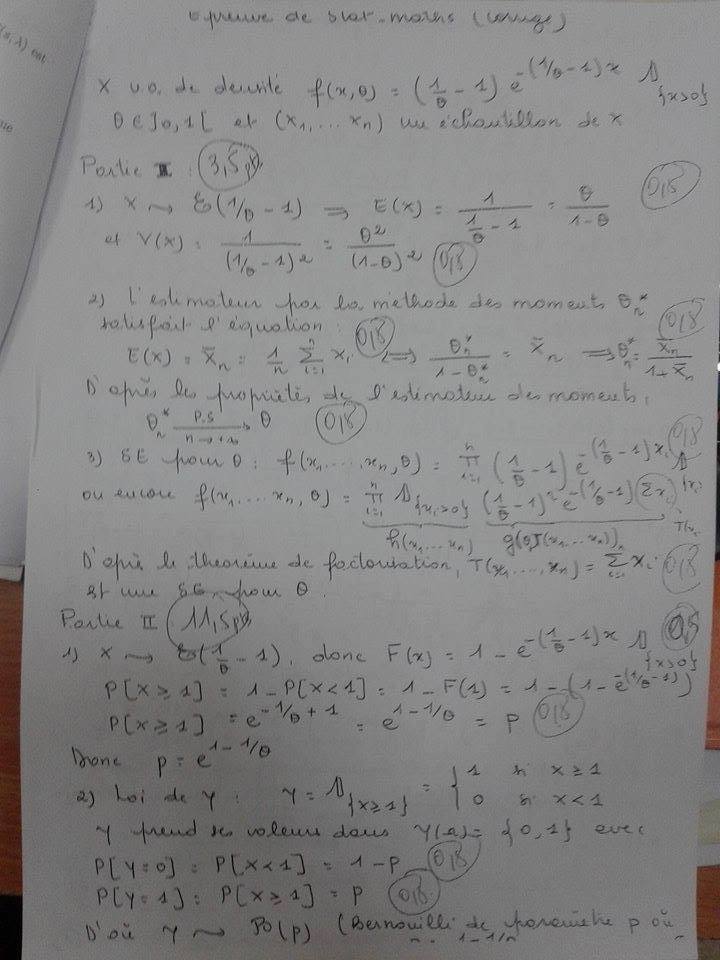 Epreuve de Stat-maths (corrigé)
X v.a. de densité f(x,θ) = (1/θ - 1) e^{-(1/θ-1)x} 𝟙_{x>0}
θ ∈ ]0,1[ et (x₁,... xₙ) un échantillon de X
Partie I : 3,5
1) X ~ Ɛ(1/θ - 1) ⟹ E(X) = 1/(1/θ - 1) = θ/(1-θ) 0,5
et V(X) = 1/(1/θ - 1)² = θ²/(1-θ)² 0,5
2) L'estimateur par la méthode des moments θₙ*
satisfait l'équation : 0,5 0,5
E(X) = X̄ₙ = 1/n Σ_{i=1}^{n} Xi ⟺ θₙ*/(1-θₙ*) = X̄ₙ ⟹ θₙ* = X̄ₙ/(1+X̄ₙ)
D'après les propriétés de l'estimateur des moments,
θₙ* →^{P.S}_{n→+∞} θ 0,5
3) SE pour θ : f(x₁,...,xₙ,θ) = ∏_{i=1}^{n} (1/θ - 1) e^{-(1/θ-1)xi} 𝟙 0,5
ou encore f(x₁...xₙ,θ) = ∏_{i=1}^{n} 𝟙_{xi>0} (1/θ - 1) e^{-(1/θ-1)Σxi}
h(x₁...xₙ) g(θ,T(x₁...xₙ))
D'après le théorème de factorisation, T(x₁,...,xₙ) = Σ_{i=1}^{n} xi 0,5
est une SE pour θ.
Partie II 11,5
1) X ~ Ɛ(1/θ - 1), donc F(x) = 1 - e^{-(1/θ-1)x} 𝟙_{x>0} 0,5
P[X≥1] = 1 - P[X<1] = 1 - F(1) = 1 - (1 - e^{-(1/θ-1)})
P[X≥1] = e^{-1/θ+1} = e^{1-1/θ} = p 0,5
Donc p = e^{1-1/θ}
2) Loi de Y : Y = 𝟙_{X≥1} = { 1 si x≥1
0 si x<1
Y prend ses valeurs dans Y(Ω) = {0,1} avec
P[Y=0] = P[X<1] = 1-p 0,5
P[Y=1] = P[X≥1] = p 0,5
D'où Y ~ B(p) (Bernouilli de paramètre p où